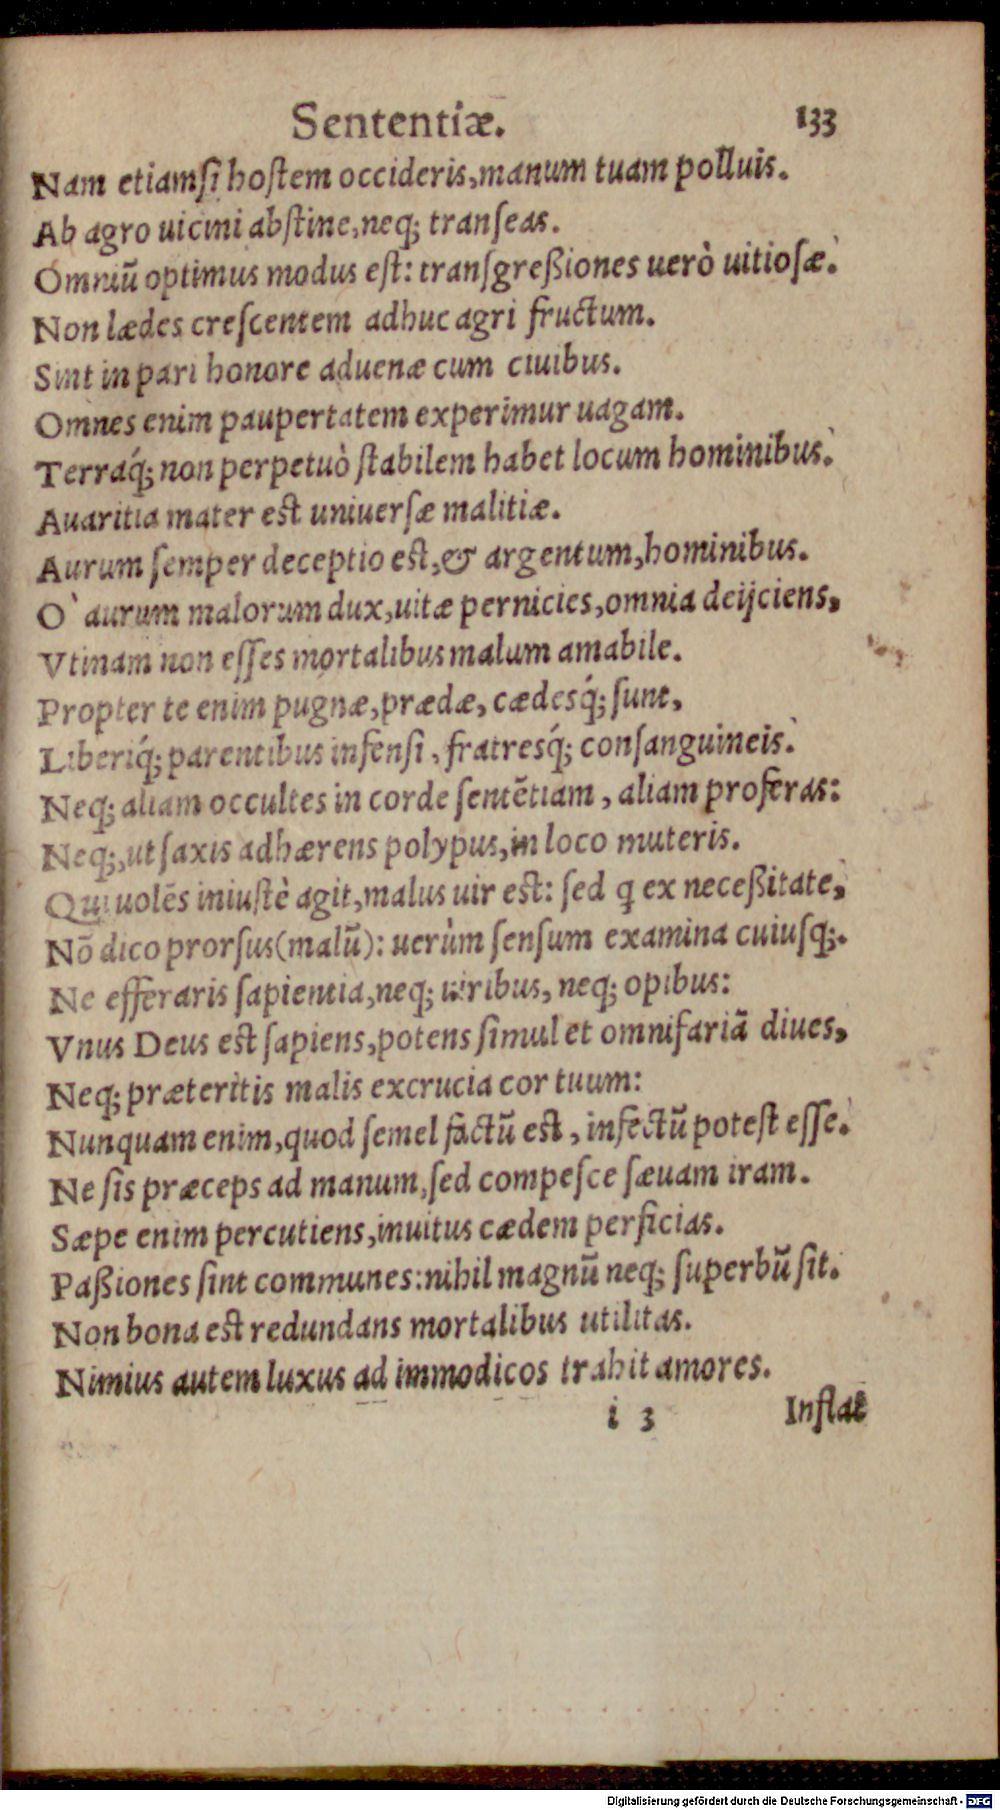 Sententiæ. 133
Nam etiamſi hoſtem occideris, manum tuam polluis.
Ab agro uicini abſtine, neq; tranſeas.
Omniū optimus modus eſt: tranſgreßiones uerò uitioſæ.
Non lædes creſcentem adhuc agri fructum.
Sint in pari honore aduenæ cum ciuibus.
Omnes enim paupertatem experimur uagam.
Terraq́; non perpetuò ſtabilem habet locum hominibus.
Auaritia mater eſt uniuerſæ malitiæ.
Aurum ſemper deceptio eſt, & argentum, hominibus.
O` aurum malorum dux, uitæ pernicies, omnia deijciens,
Vtinam non eſſes mortalibus malum amabile.
Propter te enim pugnæ, prædæ, cædesq́; ſunt,
Liberiq́; parentibus infenſi, fratresq́; conſanguineis.
Neq; aliam occultes in corde ſentētiam, aliam proferas:
Neq;, ut ſaxis adhærens polypus, in loco muteris.
Qui uolēs iniuſtè agit, malus uir eſt: ſed q ex neceßitate,
Nō dico prorſus (malū): uerùm ſenſum examina cuiuſq;.
Ne efferaris ſapientia, neq; uiribus, neq; opibus:
Vnus Deus eſt ſapiens, potens ſimul et omnifariā diues,
Neq; præteritis malis excrucia cor tuum:
Nunquam enim, quod ſemel factū eſt, infectū poteſt eſſe.
Ne ſis præceps ad manum, ſed compeſce ſæuam iram.
Sæpe enim percutiens, inuitus cædem perficias.
Paßiones ſint communes: nihil magnū neq; ſuperbū ſit.
Non bona eſt redundans mortalibus utilitas.
Nimius autem luxus ad immodicos trahit amores.
i 3 Inflat
Digitalisierung gefördert durch die Deutsche Forschungsgemeinschaft - DFG